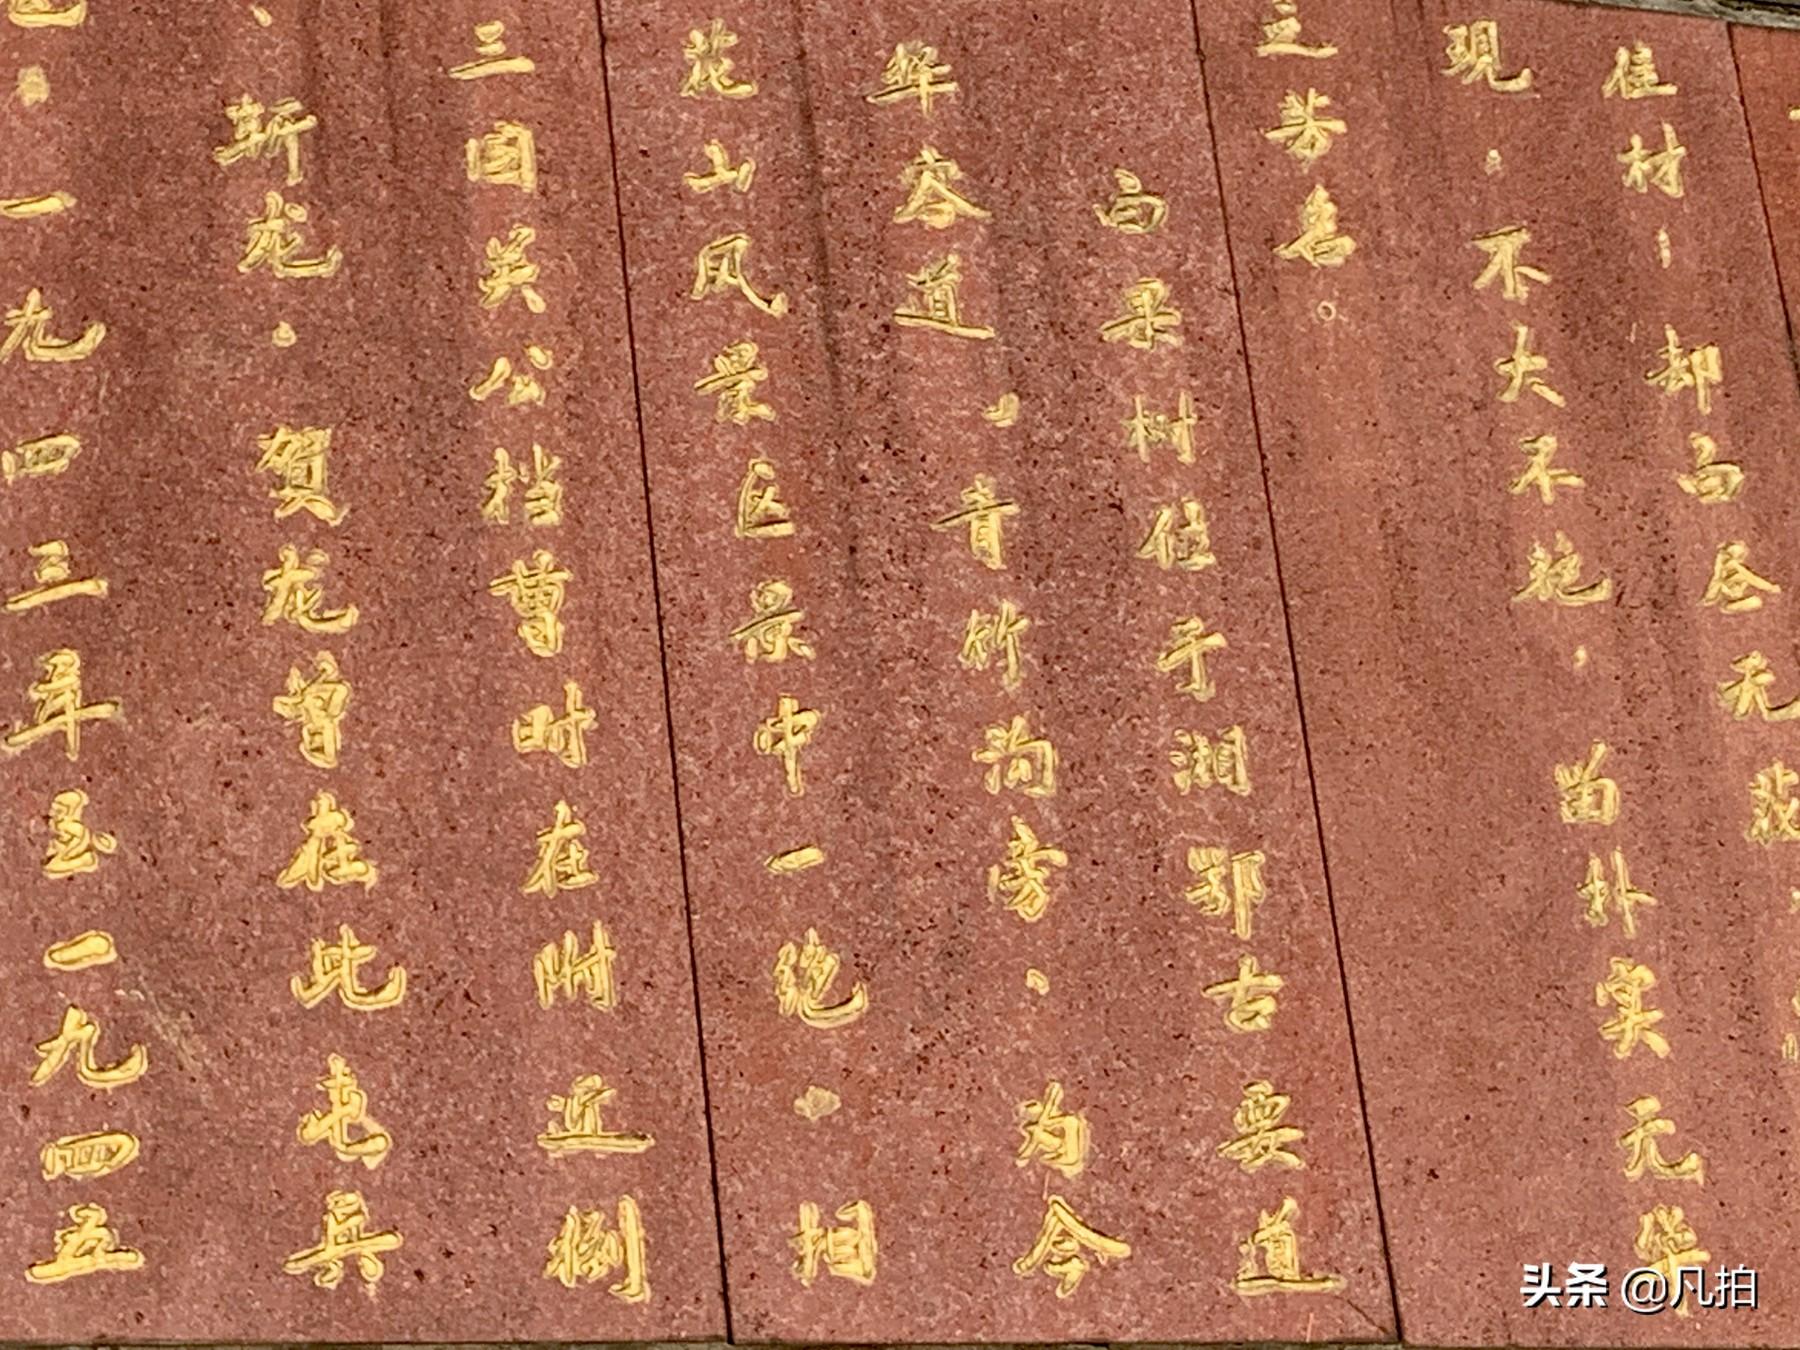 佳材、却白尽无
現。不大不艳，朴实无华
之芳名。
白果树位于湘鄂古要道
华容道、青竹沟旁、为今
花山风景区景中一绝。相
三国关公挡曹时在附近
、斩龙。贺龙曾在此屯兵
。一九四三年至一九四五
头条 @凡拍